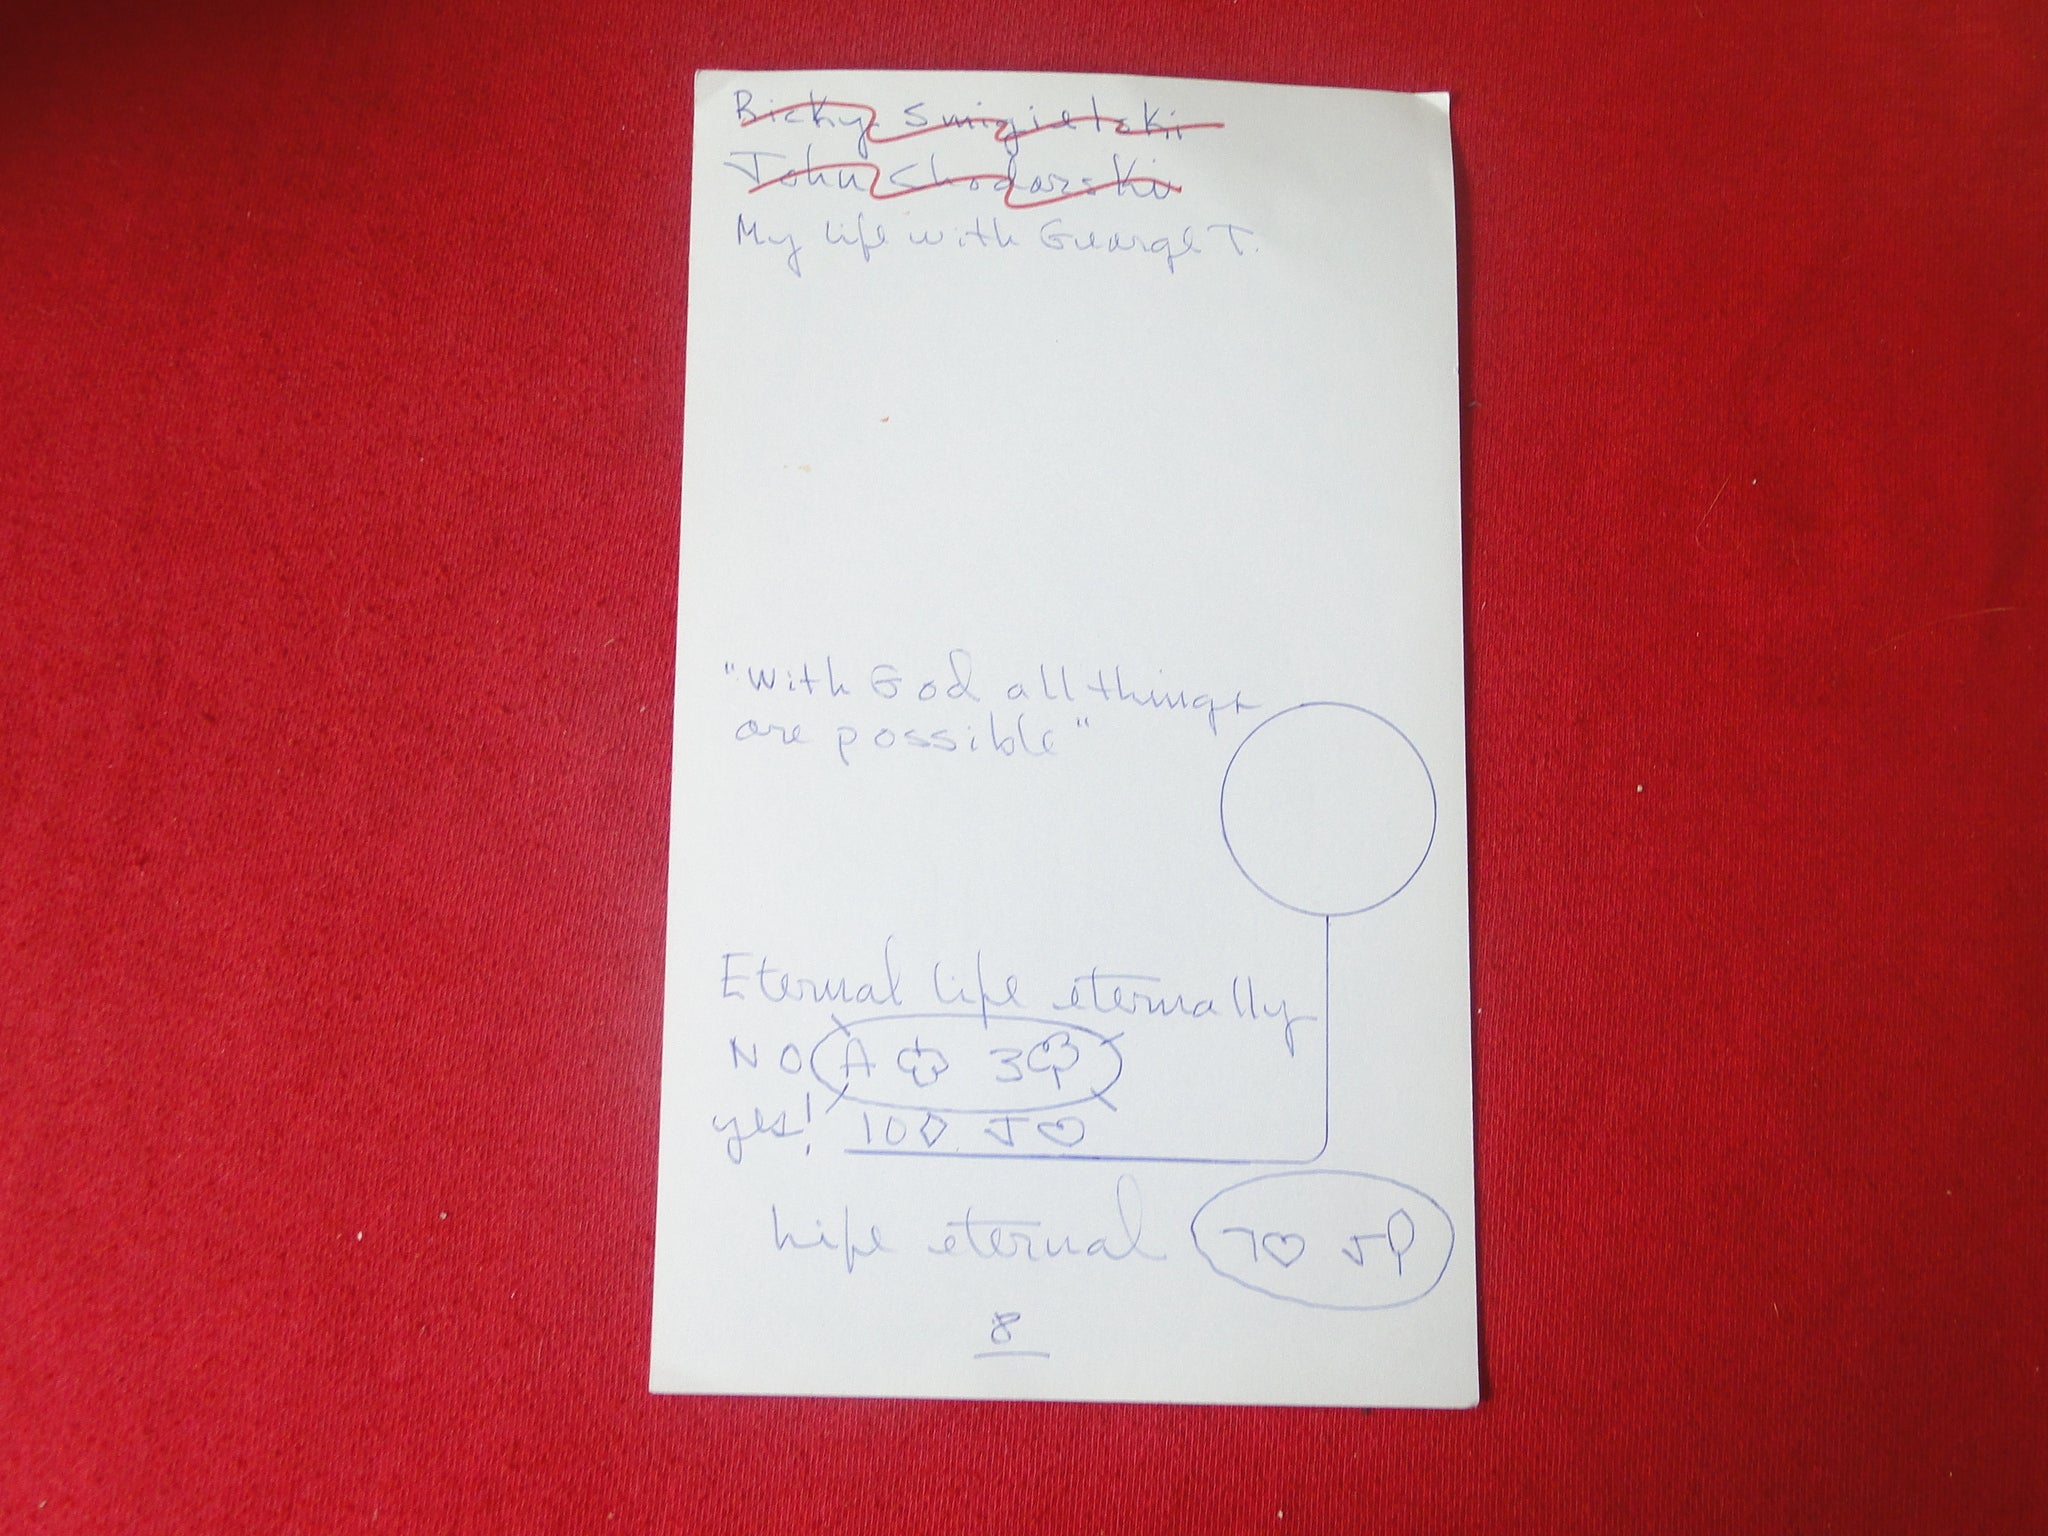 Bicky Smigielski
John Chodorski
My life with George T.
"With God all things
are possible"
Eternal life eternally
NO A ♣ 3 ♣
yes! 10 ♢ J ♡
Life eternal 7 ♡ J
8